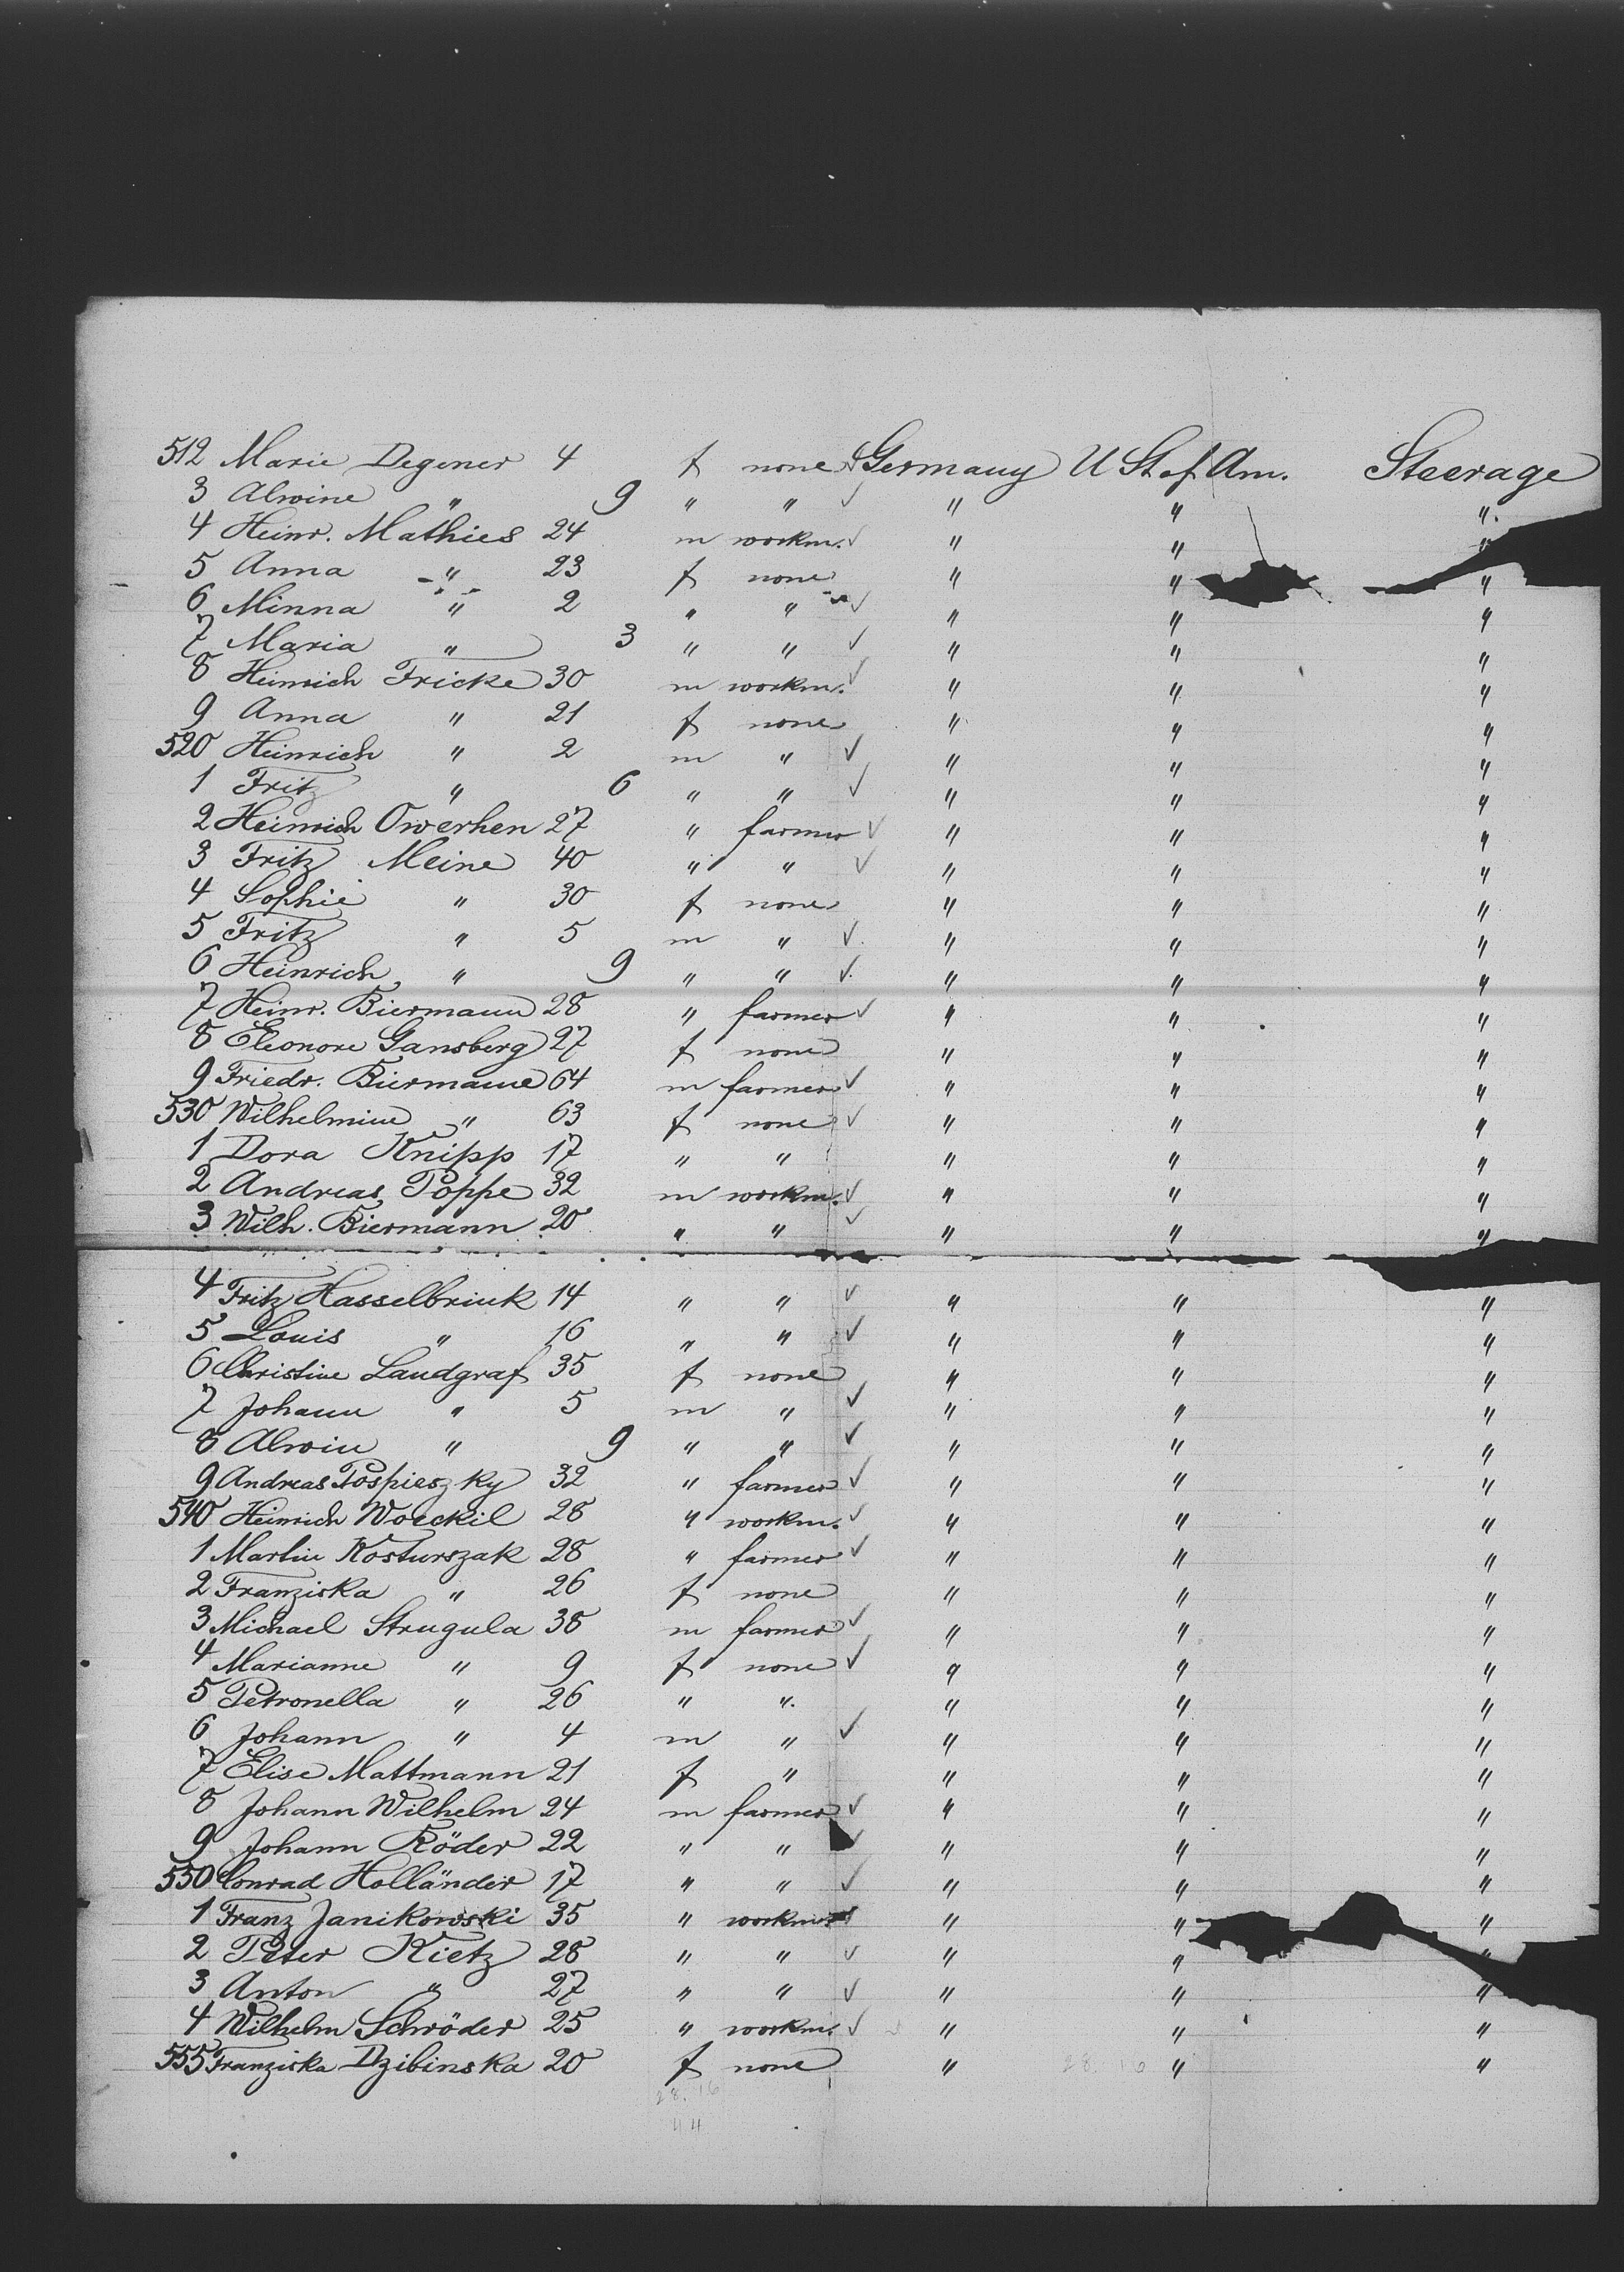 512 Marie Degener 4 f none Germany U St of Am. Steerage
3 Alwine " 9 " " " " "
4 Heinr. Mathies 24 m workm. " " "
5 Anna -"- 23 f none " " "
6 Minna " 2 " " " " "
7 Maria " 3 " " " " "
8 Heinrich Fricke 30 m workm. " " "
9 Anna " 21 f none " " "
520 Heinrich " 2 m " " " "
1 Fritz " 6 " " " " "
2 Heinrich Owerhen 27 " farmer " " "
3 Fritz Meine 40 " " " " "
4 Sophie " 30 f none " " "
5 Fritz " 5 m " " " "
6 Heinrich " 9 " " " " "
7 Heinr. Biermann 28 " farmer " " "
8 Eleonore Gansberg 27 f none " " "
9 Friedr. Biermann 64 m farmer " " "
530 Wilhelmine " 63 f none " " "
1 Dora Knipp 17 " " " " "
2 Andreas Poppe 32 m workm. " " "
3 Wilh. Biermann 20 " " " " "
4 Fritz Hasselbrink 14 " " " " "
5 Louis " 16 " " " " "
6 Christine Landgraf 35 f none " " "
7 Johann " 5 m " " " "
8 Alwin " 9 " " " " "
9 Andreas Pospieszky 32 " farmer " " "
540 Heinrich Woeckil 28 " workm. " " "
1 Martin Kosturszak 28 " farmer " " "
2 Franziska " 26 f none " " "
3 Michael Strugula 38 m farmer " " "
4 Marianne " 9 f none " " "
5 Petronella " 26 " " " " "
6 Johann " 4 m " " " "
7 Elise Mattmann 21 f " " " "
8 Johann Wilhelm 24 m farmer " " "
9 Johann Röder 22 " " " " "
550 Conrad Holländer 17 " " " " "
1 Franz Janikowski 35 " workm. " " "
2 Peter Kietz 28 " " " " "
3 Anton " 27 " " " " "
4 Wilhelm Schröder 25 " workm. " " "
555 Franziska Dzibinska 20 f none " " "
28. 16
44